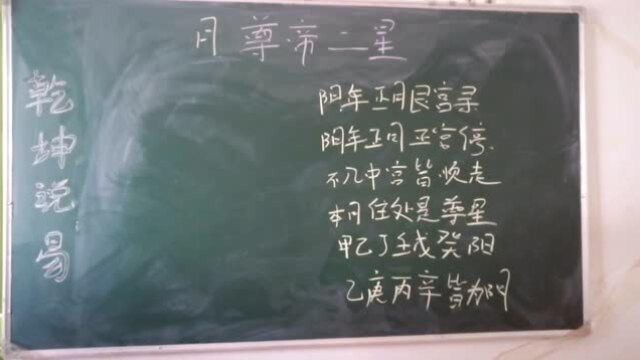 月尊帝二星
乾坤说易
阳年正月艮宫寻
阴年正月正宫停
不几中宫皆顺走
本月住处是尊星
甲乙丁壬戊癸阳
乙庚丙辛皆为阴